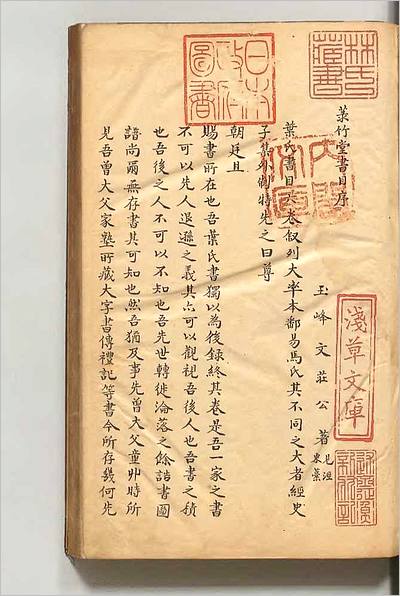 林氏藏書
日本政府圖書
菉竹堂書目序
淺草文庫
玉峰文莊公著見涇東藁
葉氏書目六卷叙列大率本鄱昜馬氏其不同之大者經史
子集外制特先之曰尊
朝廷且
賜書所在也吾葉氏書獨以為後録終其卷是吾一家之書
不可以先人退遜之義其亦可以觀視吾後人也吾書之積
也吾後之人不可以不知也吾先世轉徙淪落之餘誥書圖
譜尚爾無存書其可知也然吾猶及事先曾大父童丱時所
見吾曾大父家塾所藏大字書傳禮記等書今所存幾何先